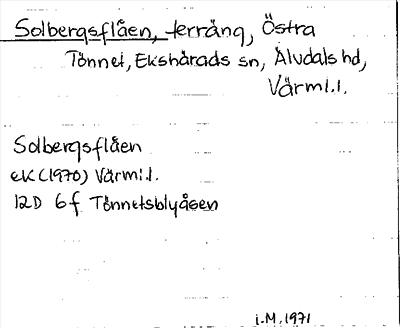 Solbergsflåen, terräng, Östra
Tönnet, Ekshärads sn, Älvdals hd,
Värml.l.
Solbergsflåen
eK (1970) Värml.l.
12D 6f Tönnetsblyåsen
i.M. 1971